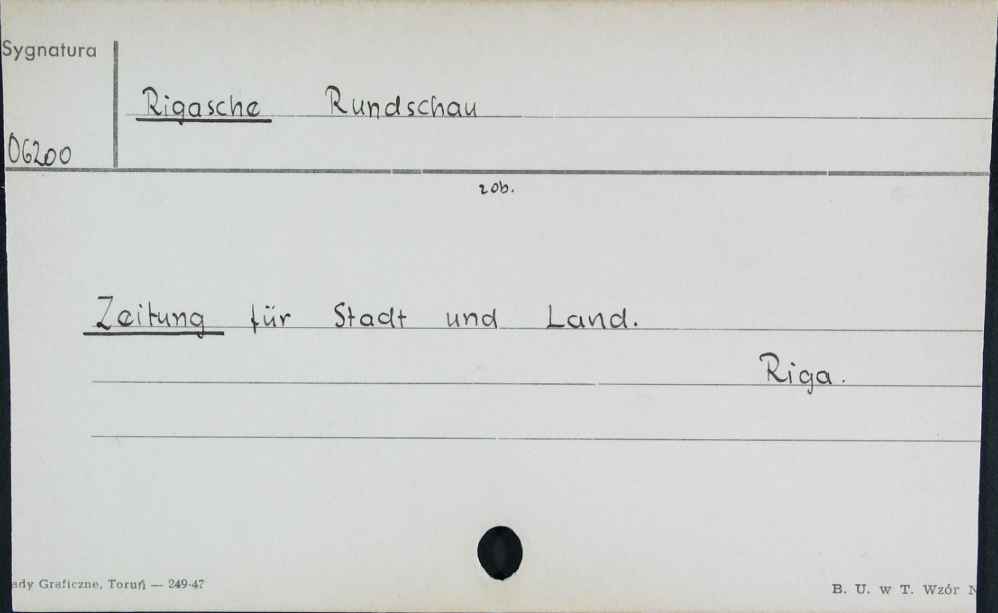 Sygnatura
Rigasche Rundschau
06200
zob.
Zeitung für Stadt und Land.
Riga.
ady Graficzne, Toruń — 249-47
B. U. w T. Wzór N